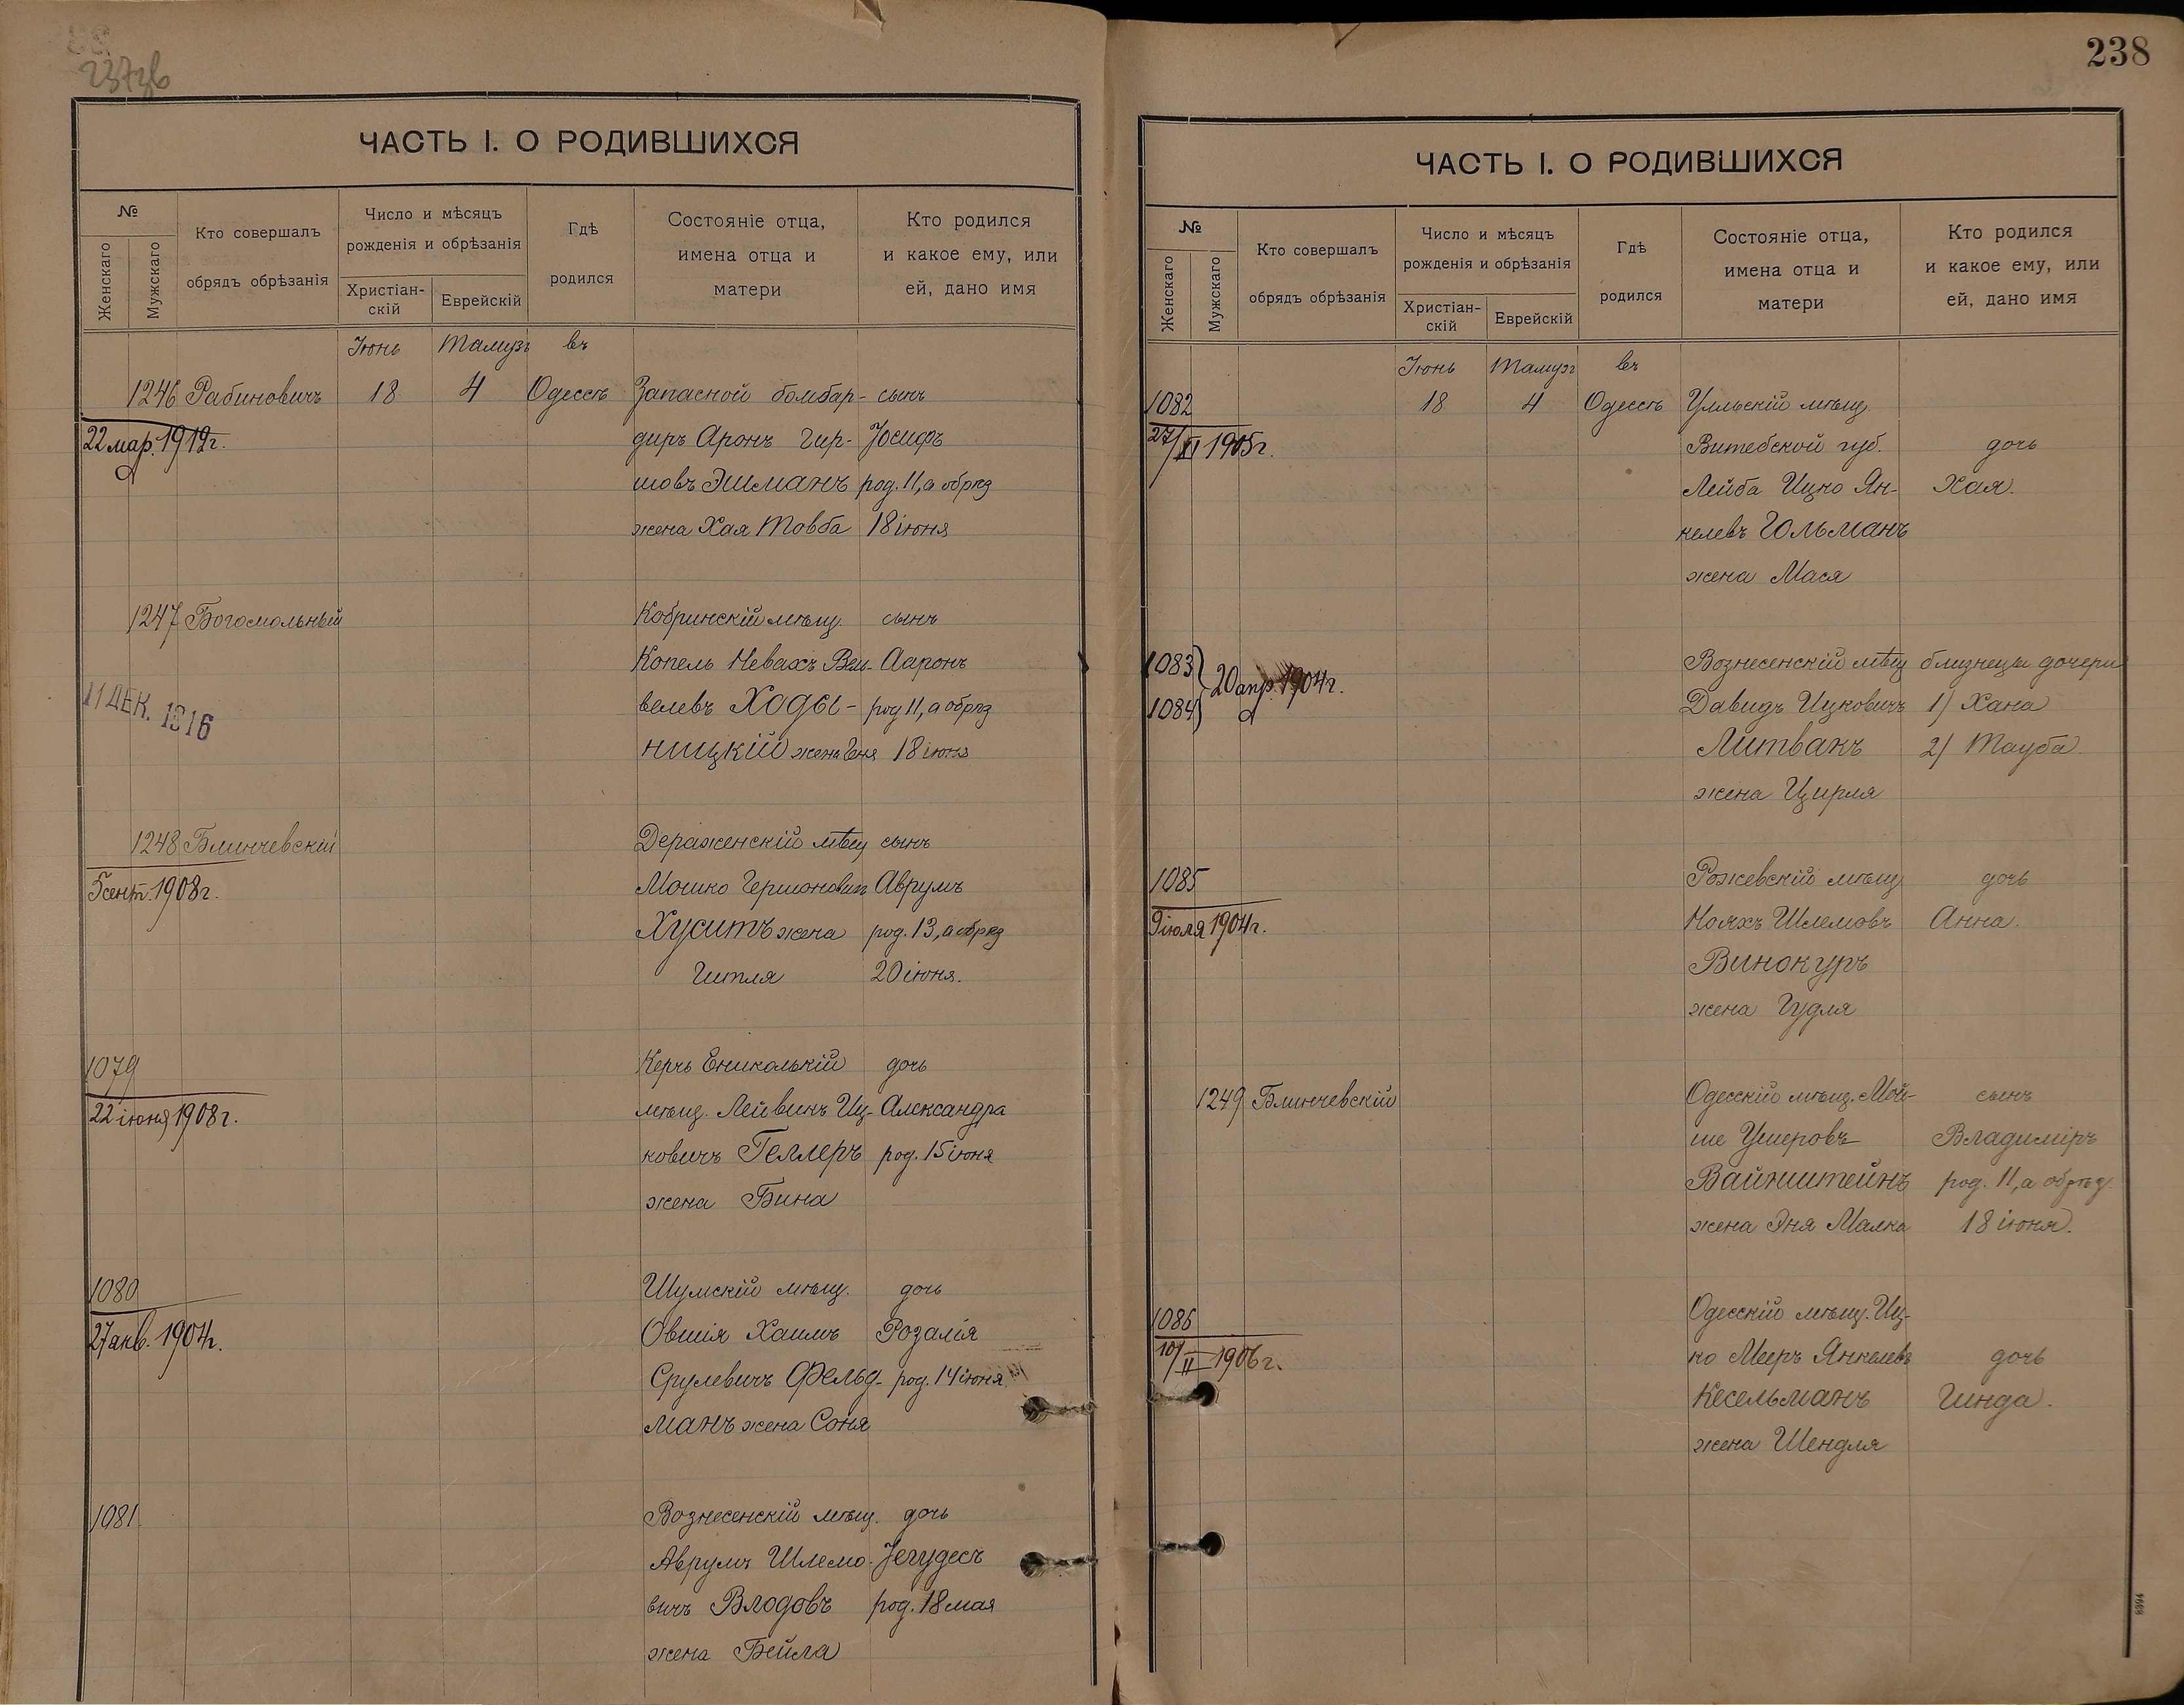 237об
ЧАСТЬ I. О РОДИВШИХСЯ
№
Женскаго
Мужскаго
Кто совершалъ
обрядъ обрѣзанія
Число и мѣсяцъ
рожденія и обрѣзанія
Христіан-
скій
Еврейскій
Гдѣ
родился
Состояніе отца,
имена отца и
матери
Кто родился
и какое ему, или
ей, дано имя
Іюнь Тамузъ въ
1246 Рабиновичъ 18 4 Одессѣ Запасной бомбар- сынъ
22 мар. 1912г. диръ Аронъ Гир- Іосифъ
шовъ Эшманъ род. 11, а обрѣз
жена Хая Товба 18 іюня
1247 Богомольный Кобринскій мѣщ. сынъ
Копель Невахъ Вен- Ааронъ
11 ДЕК. 1916 велевъ Ходы- род 11, а обрѣз
ницкій жена Геня 18 іюня
1248 Блинчевскій Дераженскій мѣщ сынъ
5 сент. 1908г. Мошко Гершоновичъ Аврумъ
Хуситъ жена род. 13, а обрѣз
Гитля 20 іюня.
1079 Керчь Ениколькій дочь
22 іюня 1908г. мѣщ. Лейвикъ Иц- Александра
ковичъ Геллеръ род. 15 іюня
жена Бина
1080 Шумскій мѣщ. дочь
27 янв. 1904г. Овшія Хаимъ Розалія
Срулевичъ Фельд- род. 14 іюня
манъ жена Соня
1081 Вознесенскій мѣщ. дочь
Аврумъ Шлемо- Іегудесъ
вичъ Влодовъ род. 18 мая
жена Бейла
238
ЧАСТЬ I. О РОДИВШИХСЯ
№
Женскаго
Мужскаго
Кто совершалъ
обрядъ обрѣзанія
Число и мѣсяцъ
рожденія и обрѣзанія
Христіан-
скій
Еврейскій
Гдѣ
родился
Состояніе отца,
имена отца и
матери
Кто родился
и какое ему, или
ей, дано имя
Іюнь Тамузъ въ
1082 18 4 Одессѣ Улльскій мѣщ.
27/XI 1905г. Витебской губ. дочь
Лейба Ицко Ян- Хая.
келевъ Гольманъ
жена Мася
1083 Вознесенскій мѣщ близнецы дочери
20 апр. 1904г.
1084 Давидъ Ицковичъ 1) Хана
Литвакъ 2) Тауба
жена Цирля
1085 Рожевскій мѣщ дочь
9 іюля 1904г. Нояхъ Шлемовъ Анна.
Винокуръ
жена Гудля
1249 Блинчевскій Одесскій мѣщ. Мой- сынъ
ше Ушеровъ Владиміръ
Вайнштейнъ род. 11, а обрѣз.
жена Эня Малка 18 іюня.
1086 Одесскій мѣщ. Иц-
10/II 1906г. ко Мееръ Янкелевъ дочь
Кесельманъ Гинда.
жена Шендля
8394